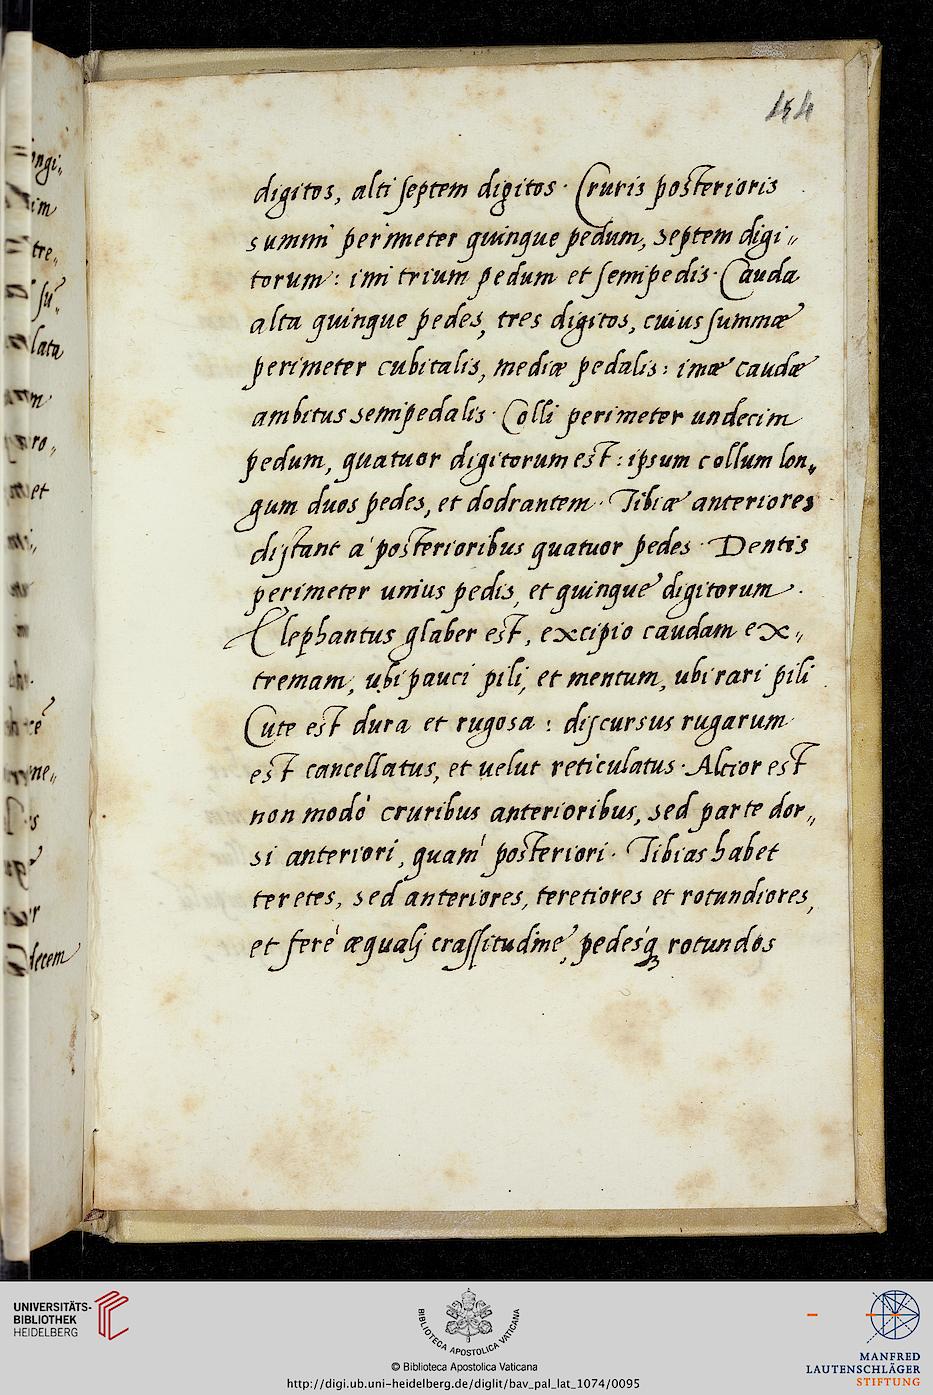 154
digitos, alti septem digitos. Cruris posterioris
summi perimeter quinque pedum, septem digi„
torum: imi trium pedum et semipedis. Cauda
alta quinque pedes, tres digitos, cuius summæ
perimeter cubitalis, mediæ pedalis: imæ caudæ
ambitus semipedalis. Colli perimeter undecim
pedum, quatuor digitorum est: ipsum collum lon„
gum duos pedes, et dodrantem. Tibiæ anteriores
distant a' posterioribus quatuor pedes. Dentis
perimeter unius pedis, et quinque digitorum.
Elephantus glaber est, excipio caudam ex„
tremam, ubi pauci pili, et mentum, ubi rari pili
Cute est dura et rugosa: discursus rugarum
est cancellatus, et uelut reticulatus. Altior est
non modò cruribus anterioribus, sed parte dor„
si anteriori, quam' posteriori. Tibias habet
teretes, sed anteriores, teretiores et rotundiores,
et ferè æquali crassitudine, pedesq́ꝫ rotundos
ongi„
im
tre„
su„
lata
ro„
et
decem
UNIVERSITÄTS-
BIBLIOTHEK
HEIDELBERG
BIBLIOTECA APOSTOLICA VATICANA
© Biblioteca Apostolica Vaticana
http://digi.ub.uni-heidelberg.de/diglit/bav_pal_lat_1074/0095
MANFRED
LAUTENSCHLÄGER
STIFTUNG